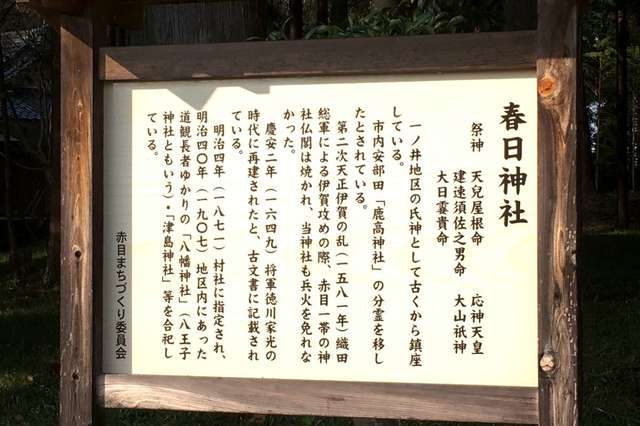 春日神社
祭神　天兒屋根命　　応神天皇
建速須佐之男命　大山祇神
大日孁貴命
一ノ井地区の氏神として古くから鎮座
している。
市内安部田「鹿高神社」の分霊を移し
たとされている。
第二次天正伊賀の乱（一五八一年）織田
総軍による伊賀攻めの際、赤目一帯の神
社仏閣は焼かれ、当神社も兵火を免れな
かった。
慶安二年（一六四九）将軍徳川家光の
時代に再建されたと、古文書に記載され
ている。
明治四年（一八七一）村社に指定され、
明治四〇年（一九〇七）地区内にあった
道観長者ゆかりの「八幡神社」（八王子
神社ともいう）・「津島神社」等を合祀し
ている。
赤目まちづくり委員会